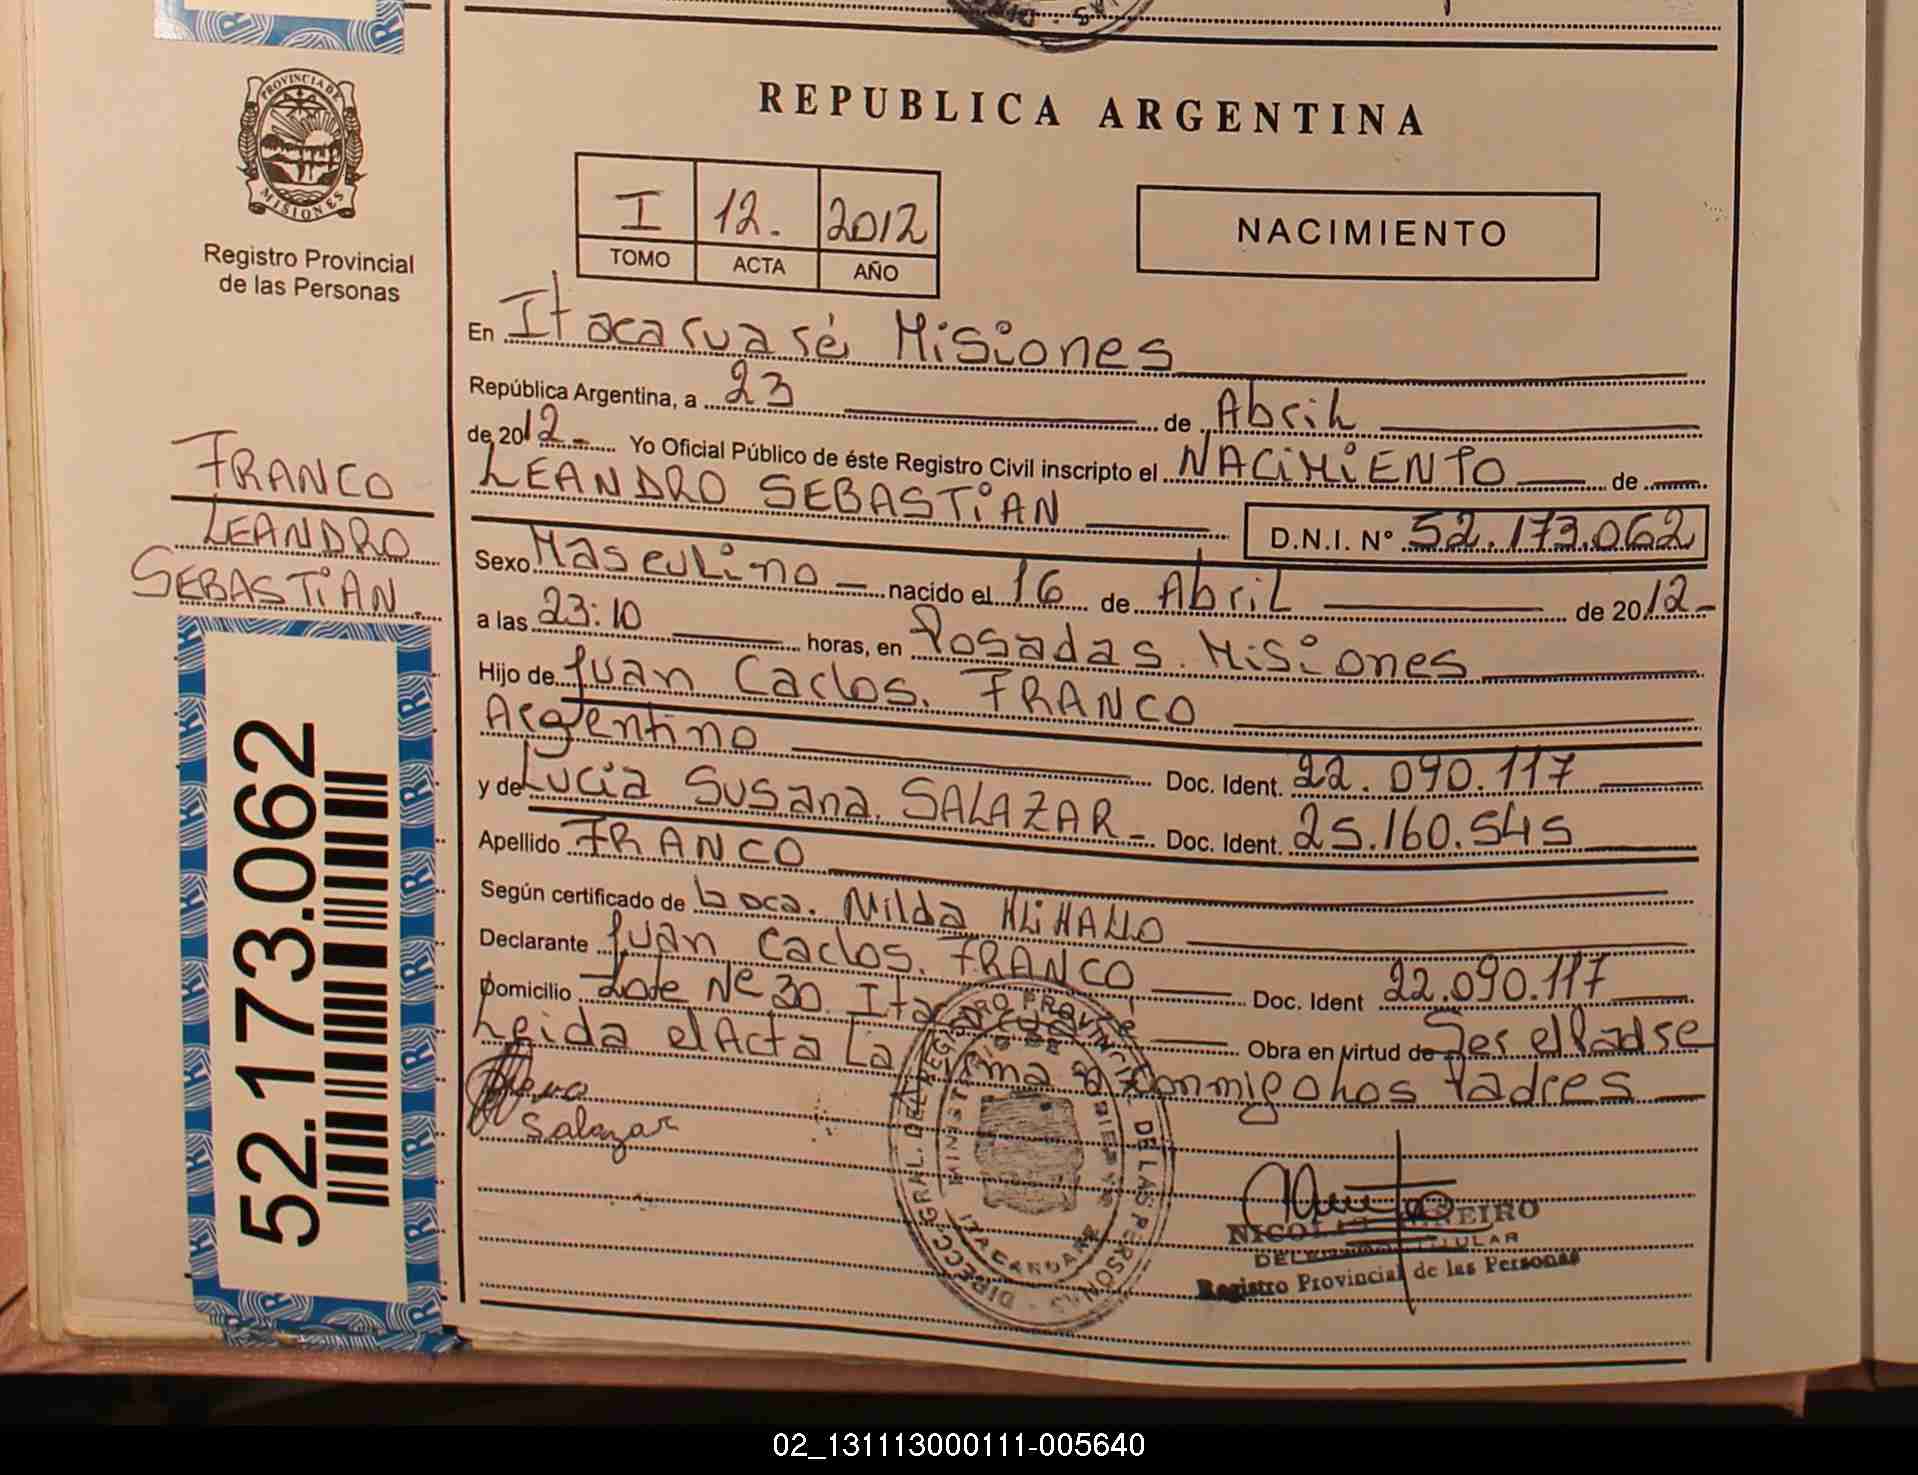 PROVINCIA DE
MISIONES
Registro Provincial
de las Personas
FRANCO
LEANDRO
SEBASTIAN.
52.173.062
REPUBLICA ARGENTINA
I 12. 2012
TOMO ACTA AÑO
NACIMIENTO
En Itacaruaré Misiones
República Argentina, a 23 de Abril
de 2012- Yo Oficial Público de éste Registro Civil inscripto el NACIMIENTO de
LEANDRO SEBASTIAN D.N.I. N° 52.173.062
Sexo Masculino nacido el 16 de Abril de 2012-
a las 23:10 horas, en Posadas. Misiones
Hijo de Juan Carlos. FRANCO
Argentino Doc. Ident. 22.090.117
y de Lucia Susana. SALAZAR- Doc. Ident. 25.160.545
Apellido FRANCO
Según certificado de Nilda
Declarante Juan Carlos. FRANCO Doc. Ident 22.090.117
Domicilio Lote Nº 30. Obra en virtud de Ser el Padre
Leida el Acta La firman conmigo los Padres
Salazar
DIRECC. GRAL. DEL REGISTRO PROVINCIAL DE LAS PERSONAS
MINISTERIO DE GOBIERNO
ITACARUARE
DELEGADO TITULAR
Registro Provincial de las Personas
02_131113000111-005640